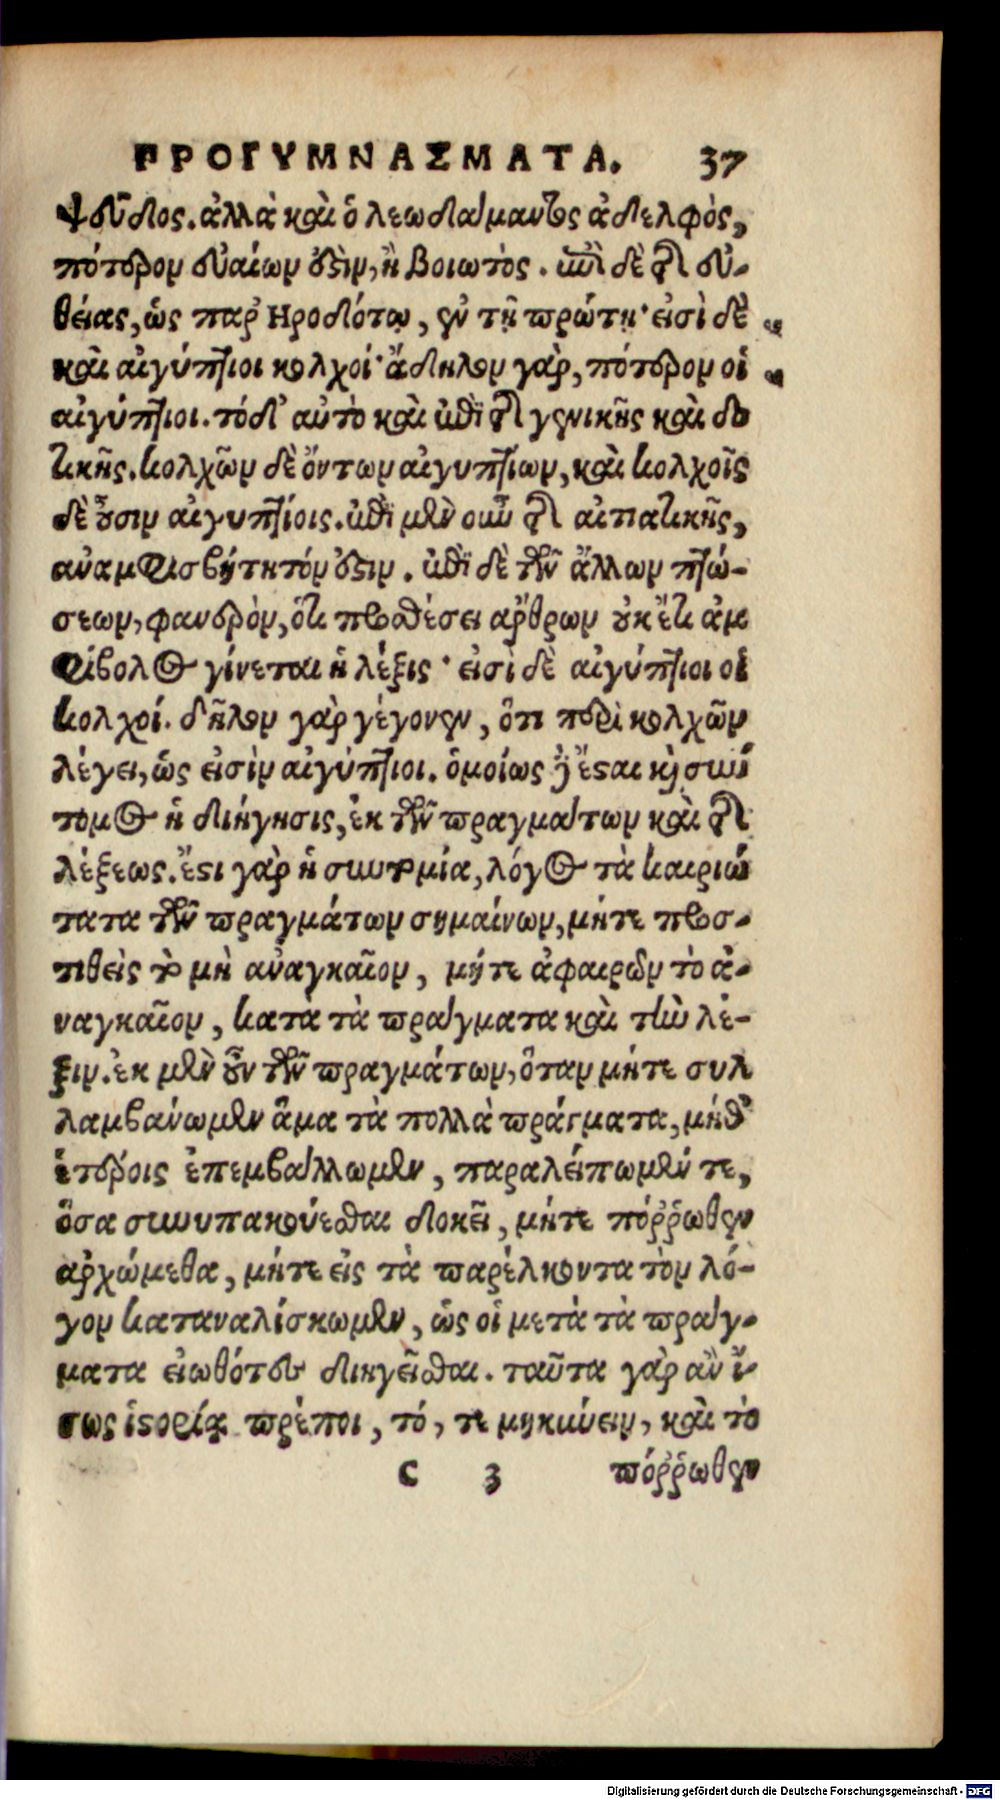 ΠΡΟΓΥΜΝΑΣΜΑΤΑ. 37
ψεῦδος. ἀλλὰ καὶ ὁ λεωδάμαντος ἀδελφὸς,
πότερον εὐαίων ἐστὶν, ἢ Βοιωτὸς. ἐπὶ δὲ τῆς εὐ-
θείας, ὡς παρ' Ηροδότῳ, ἐν τῇ πρώτῃ· εἰσὶ δὲ
καὶ αἰγύπτιοι κολχοί· ἄδηλον γὰρ, πότερον οἱ
αἰγύπτιοι. τό δ' αὐτὸ καὶ ἐπὶ τῆς γενικῆς καὶ δο
τικῆς. κολχῶν δὲ ὄντων αἰγυπτίων, καὶ κολχοῖς
δὲ οὖσιν αἰγυπτίοις. ἐπὶ μὲν οὖν τῆς αἰτιατικῆς,
ἀναμφισβήτητόν ἐστιν. ἐπὶ δὲ τῶν ἄλλων πτώ-
σεων, φανερὸν, ὅτι προσθέσει ἄρθρων οὐκ ἔτι ἀμ
φίβολος γίνεται ἡ λέξις· εἰσὶ δὲ αἰγύπτιοι οἱ
κολχοί. δῆλον γὰρ γέγονεν, ὅτι περὶ κολχῶν
λέγει, ὡς εἰσὶν αἰγύπτιοι. ὁμοίως δ' ἔσται καὶ σύν
τομος ἡ διήγησις, ἐκ τῶν πραγμάτων καὶ τῆς
λέξεως. ἔστι γὰρ ἡ συντομία, λόγος τὰ καιριώ
τατα τῶν πραγμάτων σημαίνων, μήτε προσ-
τιθεὶς τὸ μὴ ἀναγκαῖον, μήτε ἀφαιρῶν τὸ ἀ-
ναγκαῖον, κατὰ τὰ πράγματα καὶ τὴν λέ-
ξιν. ἐκ μὲν οὖν τῶν πραγμάτων, ὅταν μήτε συλ
λαμβάνωμεν ἅμα τὰ πολλὰ πράγματα, μήθ'
ἑτέροις ἐπεμβάλλωμεν, παραλείπωμέν τε,
ὅσα συνυπακούεσθαι δοκεῖ, μήτε πόῤῥωθεν
ἀρχώμεθα, μήτε εἰς τὰ παρέλκοντα τὸν λό-
γον καταναλίσκωμεν, ὡς οἱ μετὰ τὰ πράγ-
ματα εἰωθότες διηγεῖσθαι. ταῦτα γὰρ ἂν ἴ-
σως ἱστορίᾳ πρέποι, τό, τε μηκύνειν, καὶ τὸ
C 3 πόῤῥωθεν
Digitalisierung gefördert durch die Deutsche Forschungsgemeinschaft - DFG